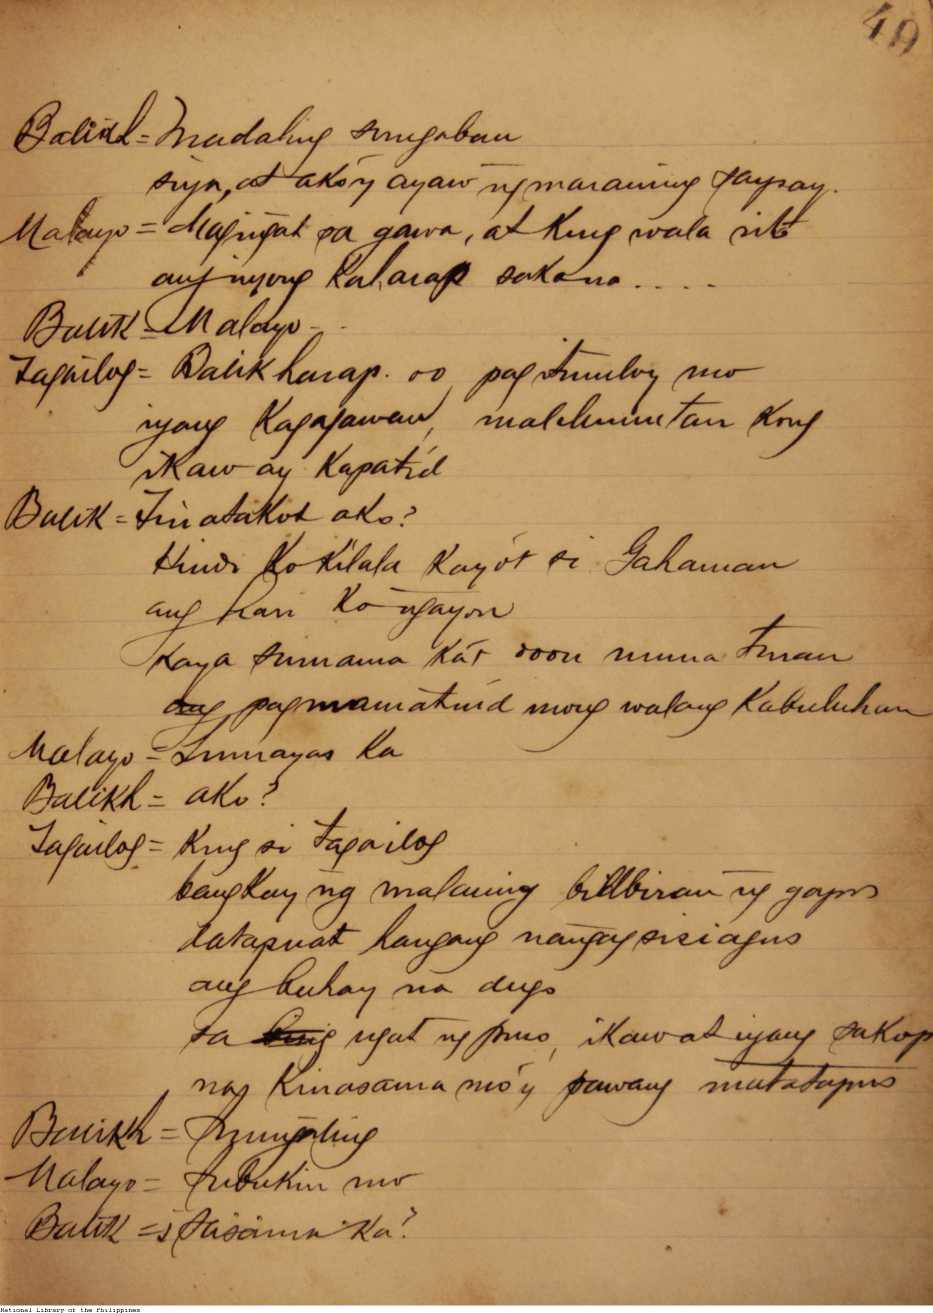 49
Balikh = Madaling sungaban
siya, at ako'y ayaw ng maraming saysay.
Malayo = Magingat sa gawa, at kung wala rito
ang inyong kaharap sakana . . . . .
Balik = Malayo - . .
Tagailog = Balik harap. oo, pag itinuloy mo
iyang kagagawan, malilimutan kong
ikaw ay kapatid
Balik = Tinatakot ako?
Hindi ko kilala kayó't si Gahaman
ang hari ko ngayon
kaya sumama ká't doon muna turan
ang pagmamatuid mong walang kabuluhan
Malayo = Lumayas ka
Balikh = ako?
Tagailog = kung si tagailog
bangkay ng malaing bibilbiran ng gapus
datapuat hangang nangagsisiagus
ang buhay na dugo
sa ugat ng puso, ikaw at iyang sakop
na kinasama mo'y pawang matatapus
Balikh = Sinungaling
Malayo = Subukin mo
Balik = ¿Sasama ka?
National Library of the Philippines